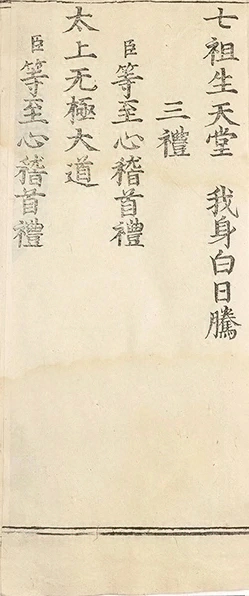 七祖生天堂　我身白日騰
三禮
臣等至心稽首禮
太上无極大道
臣等至心稽首禮